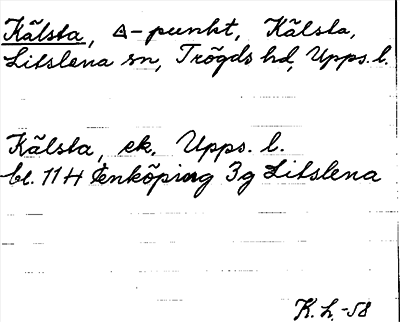 Kälsta, △-punkt, Kälsta,
Litslena sn, Trögds hd, Upps. l.
Kälsta, ek. Upps. l.
bl. 11 H Enköping 3g Litslena
K. L. -58